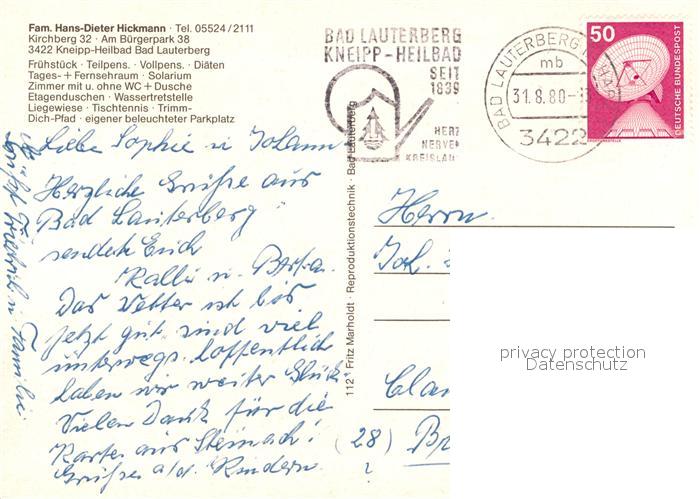 Fam. Hans-Dieter Hickmann · Tel. 05524/2111
Kirchberg 32 · Am Bürgerpark 38
3422 Kneipp-Heilbad Bad Lauterberg
Frühstück · Teilpens. · Vollpens. · Diäten
Tages- + Fernsehraum · Solarium
Zimmer mit u. ohne WC + Dusche
Etagenduschen · Wassertretstelle
Liegewiese · Tischtennis · Trimm-
Dich-Pfad · eigener beleuchteter Parkplatz
BAD LAUTERBERG
KNEIPP-HEILBAD
SEIT
1839
HERZ
NERVEN
KREISLAU
BAD LAUTERBERG
mb
31.8.80-1
3422
50
DEUTSCHE BUNDESPOST
ERDEFUNKSTELLE
Liebe Sophie u Johann
Herzliche Grüße aus
Bad Lauterberg
sendet Euch
Kalli u.
Das Wetter ist bis
jetzt gut sind viel
unterwegs. hoffentlich
haben wir weiter Glück
Vielen Dank für die
Karte aus Steinach!
Grüße a/d. Kindern.
grüßt Friedrich u Familie
112 · Fritz Marholdt · Reproduktionstechnik · Bad Lauterberg
Herrn
Joh.
Clau
(28) Br
?
privacy protection
Datenschutz